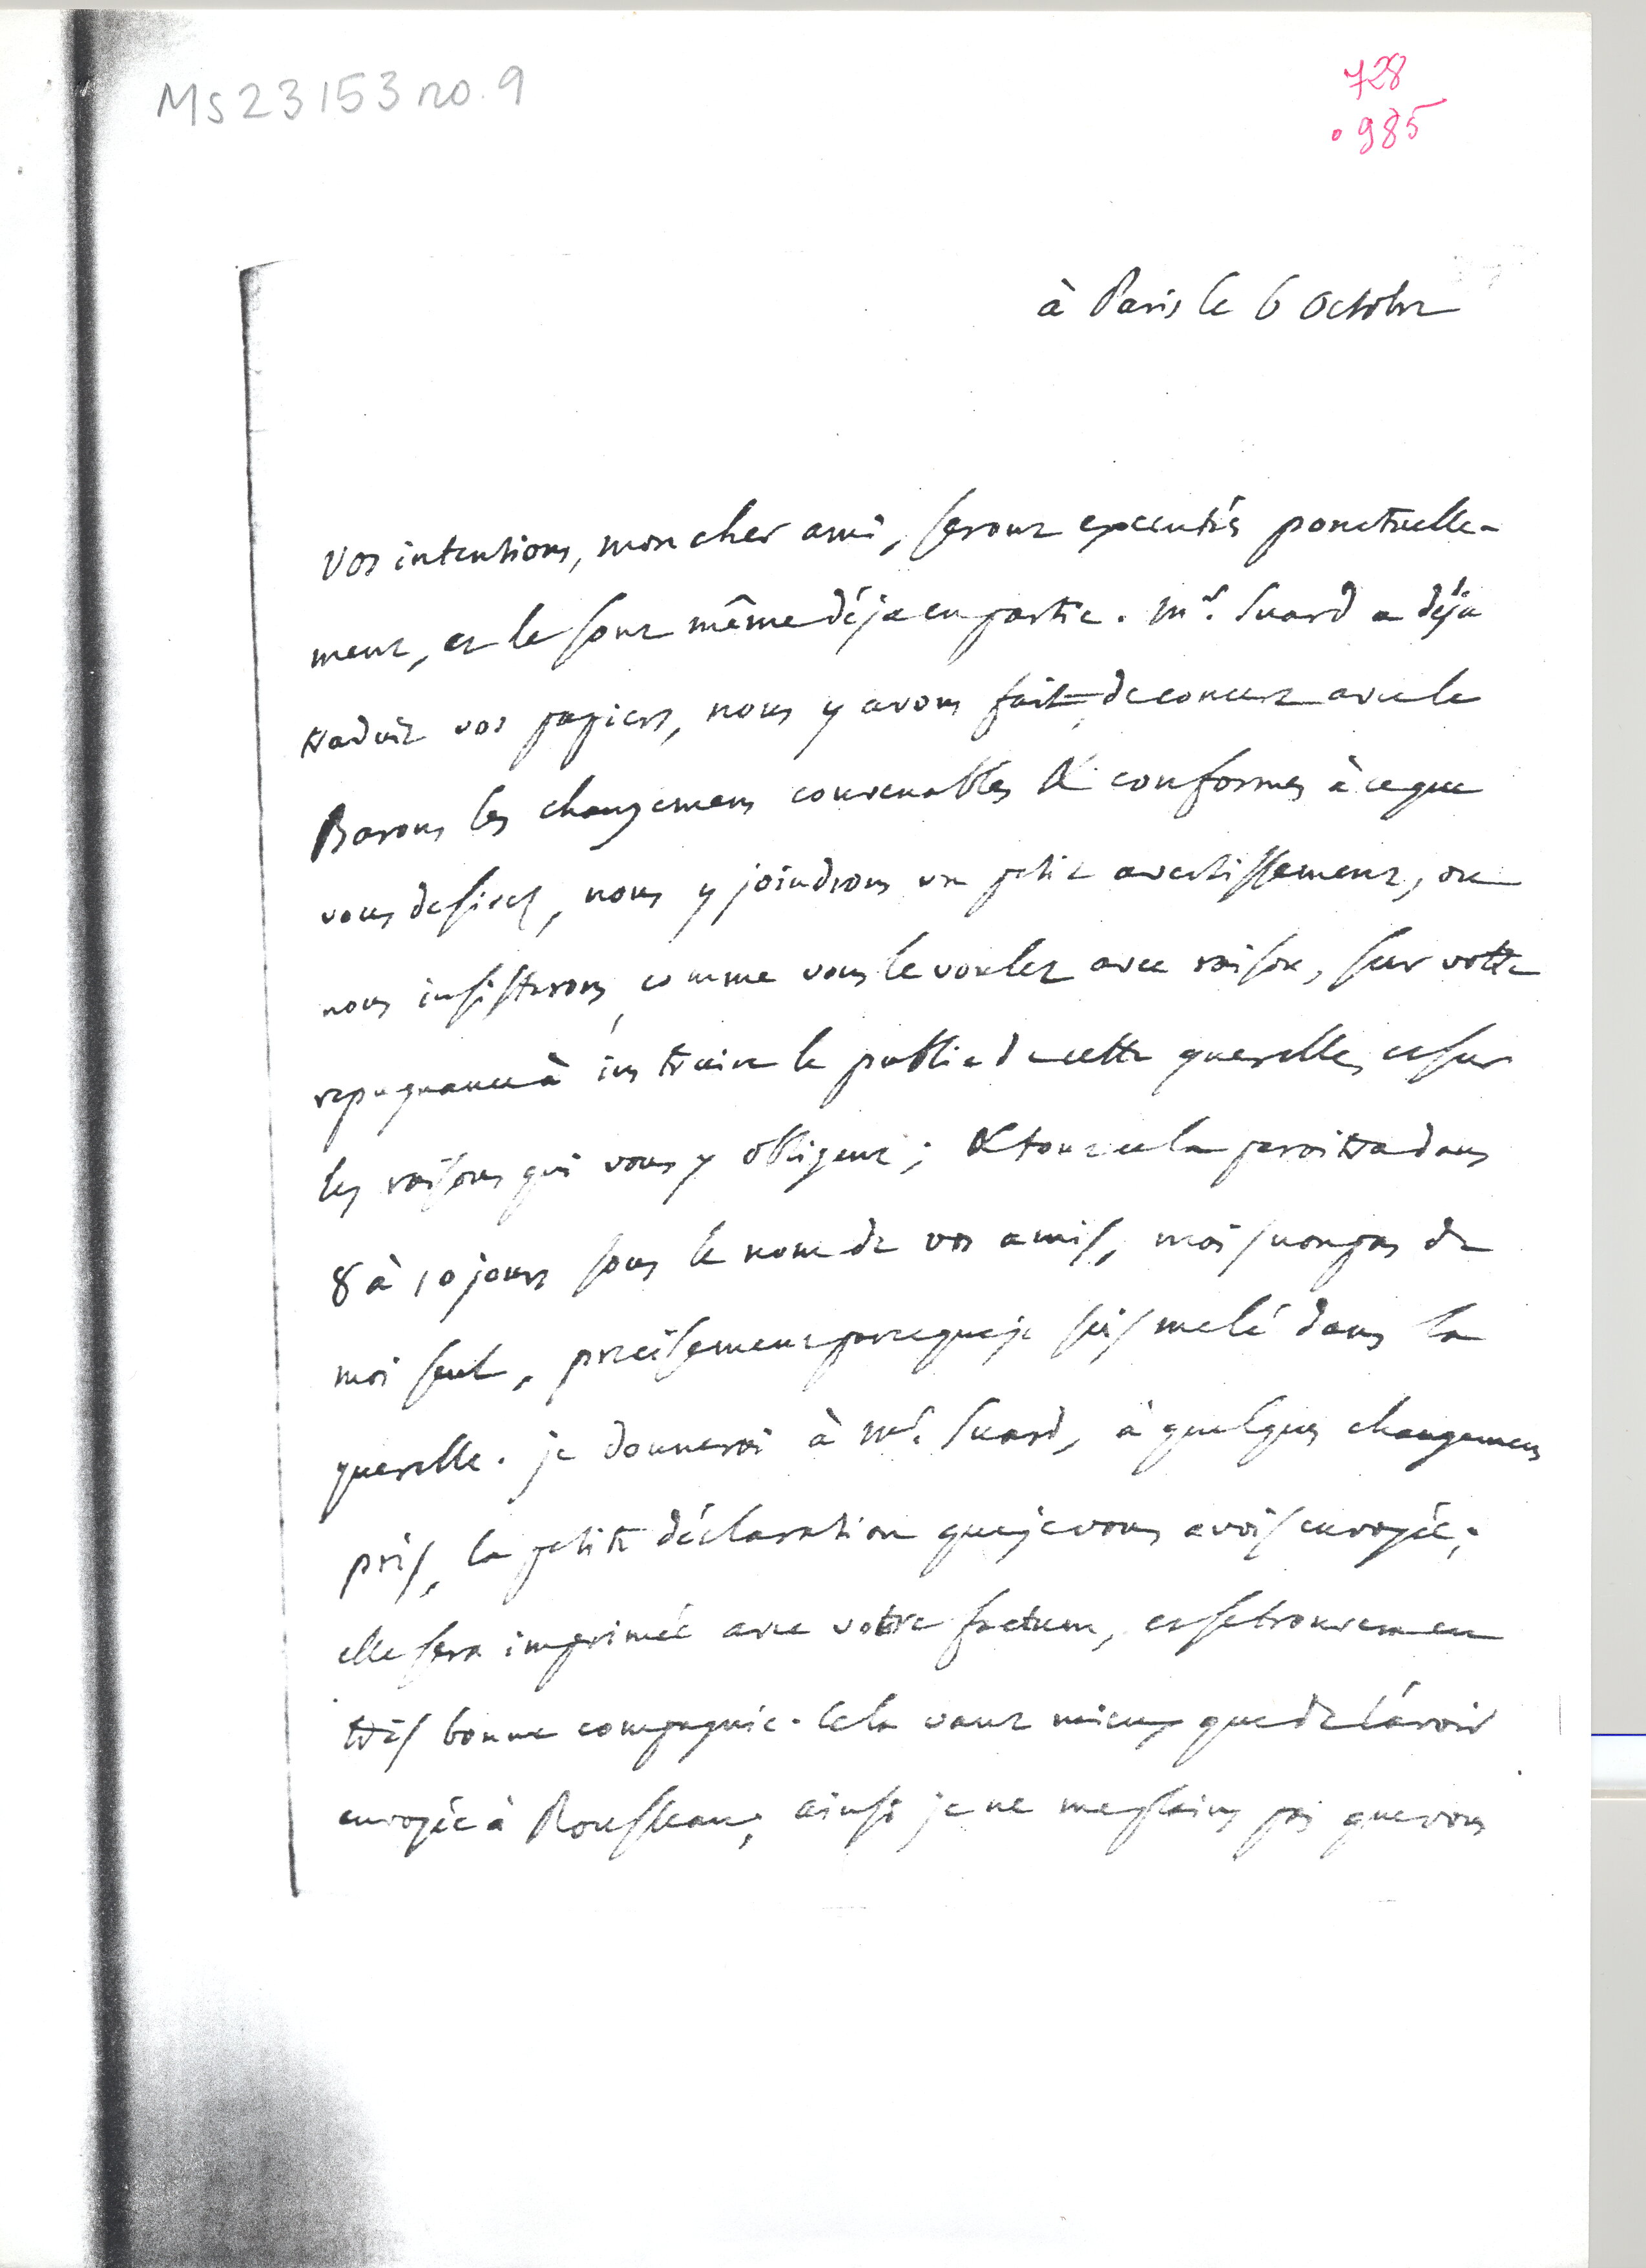 Ms 23153 no. 9
728
985
à Paris le 6 Octobre
Vos intentions, mon cher ami, seront executées ponctuelle-
ment, et le sont même déja en partie. Mr. Suard a déja
traduit vos papiers, nous y avons fait de concert avec le
Baron les changemens convenables & conformes à ce que
vous desirez, nous y joindrons un petit avertissement, ou
nous insisterons, comme vous le voulez avec raison, sur votre
repugnance à instruire le public de cette querelle, et sur
les raisons qui vous y obligent ; & tout cela paroittra dans
8 à 10 jours sous le nom de vos amis, mais non pas de
moi seul, precisement parce que je suis melé dans la
querelle. je donnerai à Mr. Suard, à quelques changemens
près, la petite déclaration que je vous avois envoyée ;
elle sera imprimée avec votre factum, et se trouvera en
très bonne compagnie. Cela vaut mieux que de l'avoir
envoyée à Rousseau ; ainsi je ne me plains pas que vous